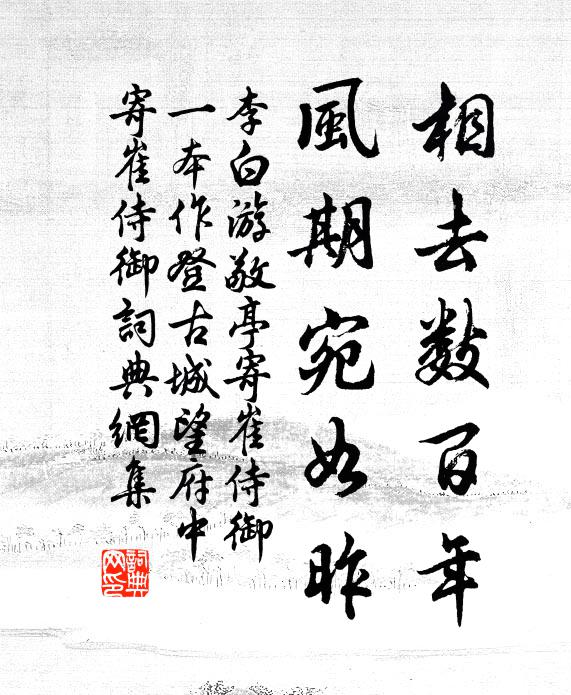 相去數百年
風期宛如昨
李白游敬亭寄崔侍御
一本作登古城望府中
寄崔侍御詞典網集
詞典
网印